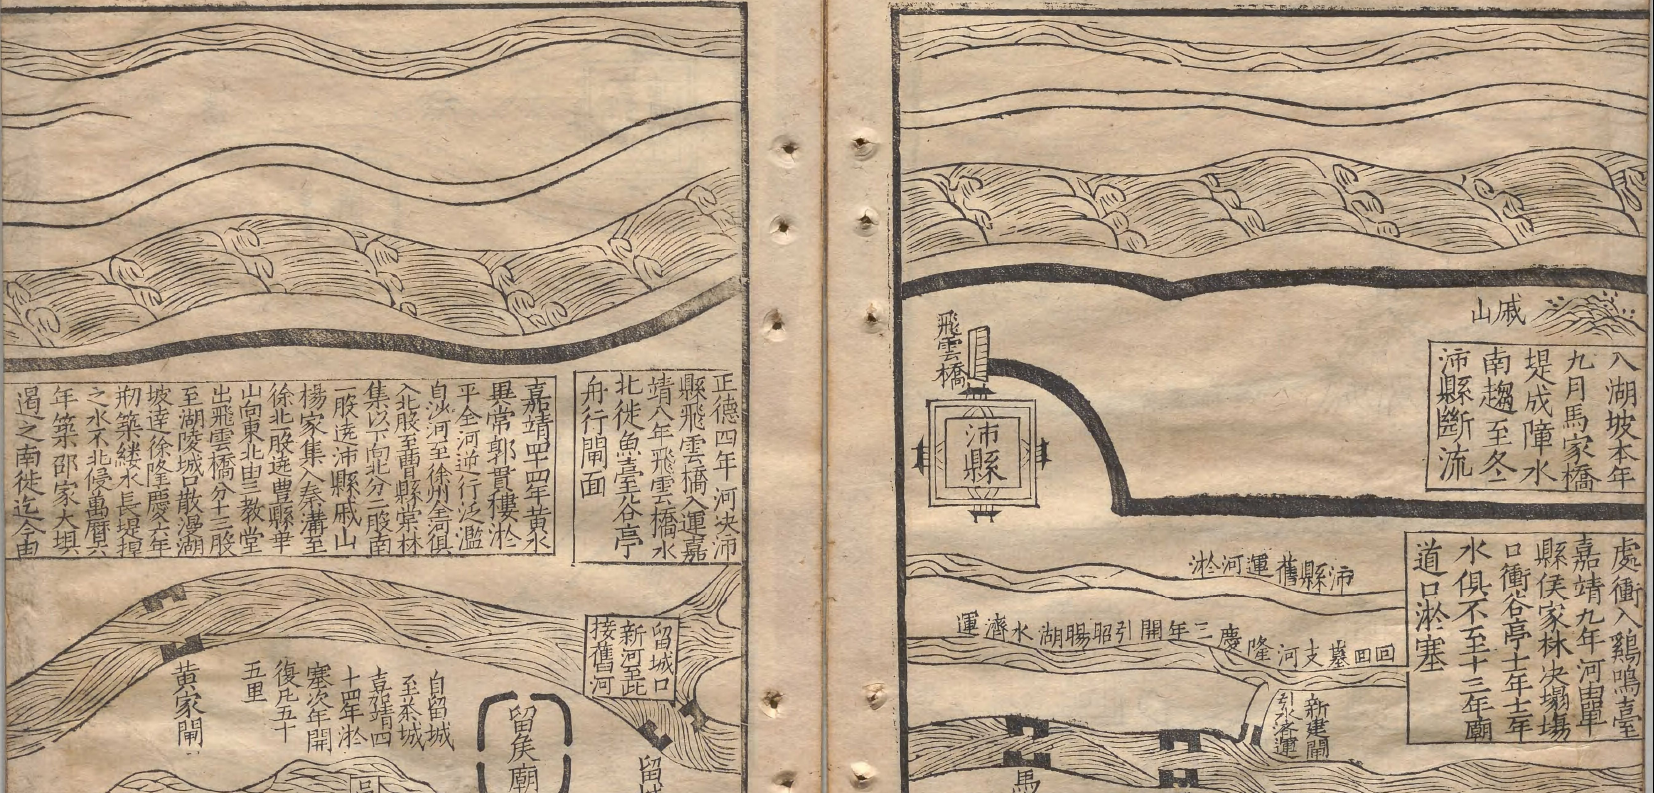 戚山
入湖坡本年
九月馬家橋
堤成障水
南趨至冬
沛縣斷流
飛雲橋
沛縣
沛縣舊運河淤
回回墓支河隆慶三年開引昭暘湖水濟運
處衝入鷄鳴臺
嘉靖九年河由單
縣侯家林决塌場
口衝谷亭十年十一年
水俱不至十三年廟
道口淤塞
新建閘
引水濟運
馬
正德四年河决沛
縣飛雲橋入運嘉
靖八年飛雲橋水
北徙魚臺谷亭
舟行閘面
嘉靖四十四年黃水
異常郭貫樓淤
平全河逆行泛濫
自沙河至徐州俱
入北股至曹縣棠林
集以下向北分二股南
一股遶沛縣戚山
楊家集入秦溝至
徐北股遶豐縣華
山向東北由三教堂
出飛雲橋分十三股
至湖陵城口散漫湖
坡達徐隆慶六年
剏築縷水長堤捍
之水不北侵萬曆六
年築邵家大埧
遏之南徙迄今由
留城口
新河至此
接舊河
自留城
至茶城
嘉靖四
十四年淤
塞次年開
復凡五十
五里
黃家閘
留矦廟
留城